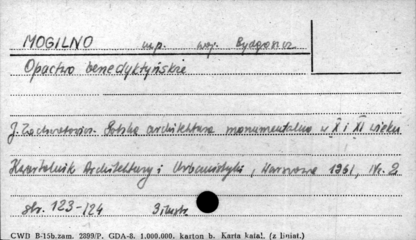 MOGILNO woj. Bydgoszcz
Opactwo benedyktyńskie
J. Zachwatowicz. Polska architektura monumentalna w X i XI wieku
Kwartalnik Architektury i Urbanistyki, Warszawa 1961, Nr. 2
str. 123-124 3 ilustr.
CWD B-15b.zam. 2899/P. GDA-8. 1.000.000. karton b. Karta katal. (z liniat.)